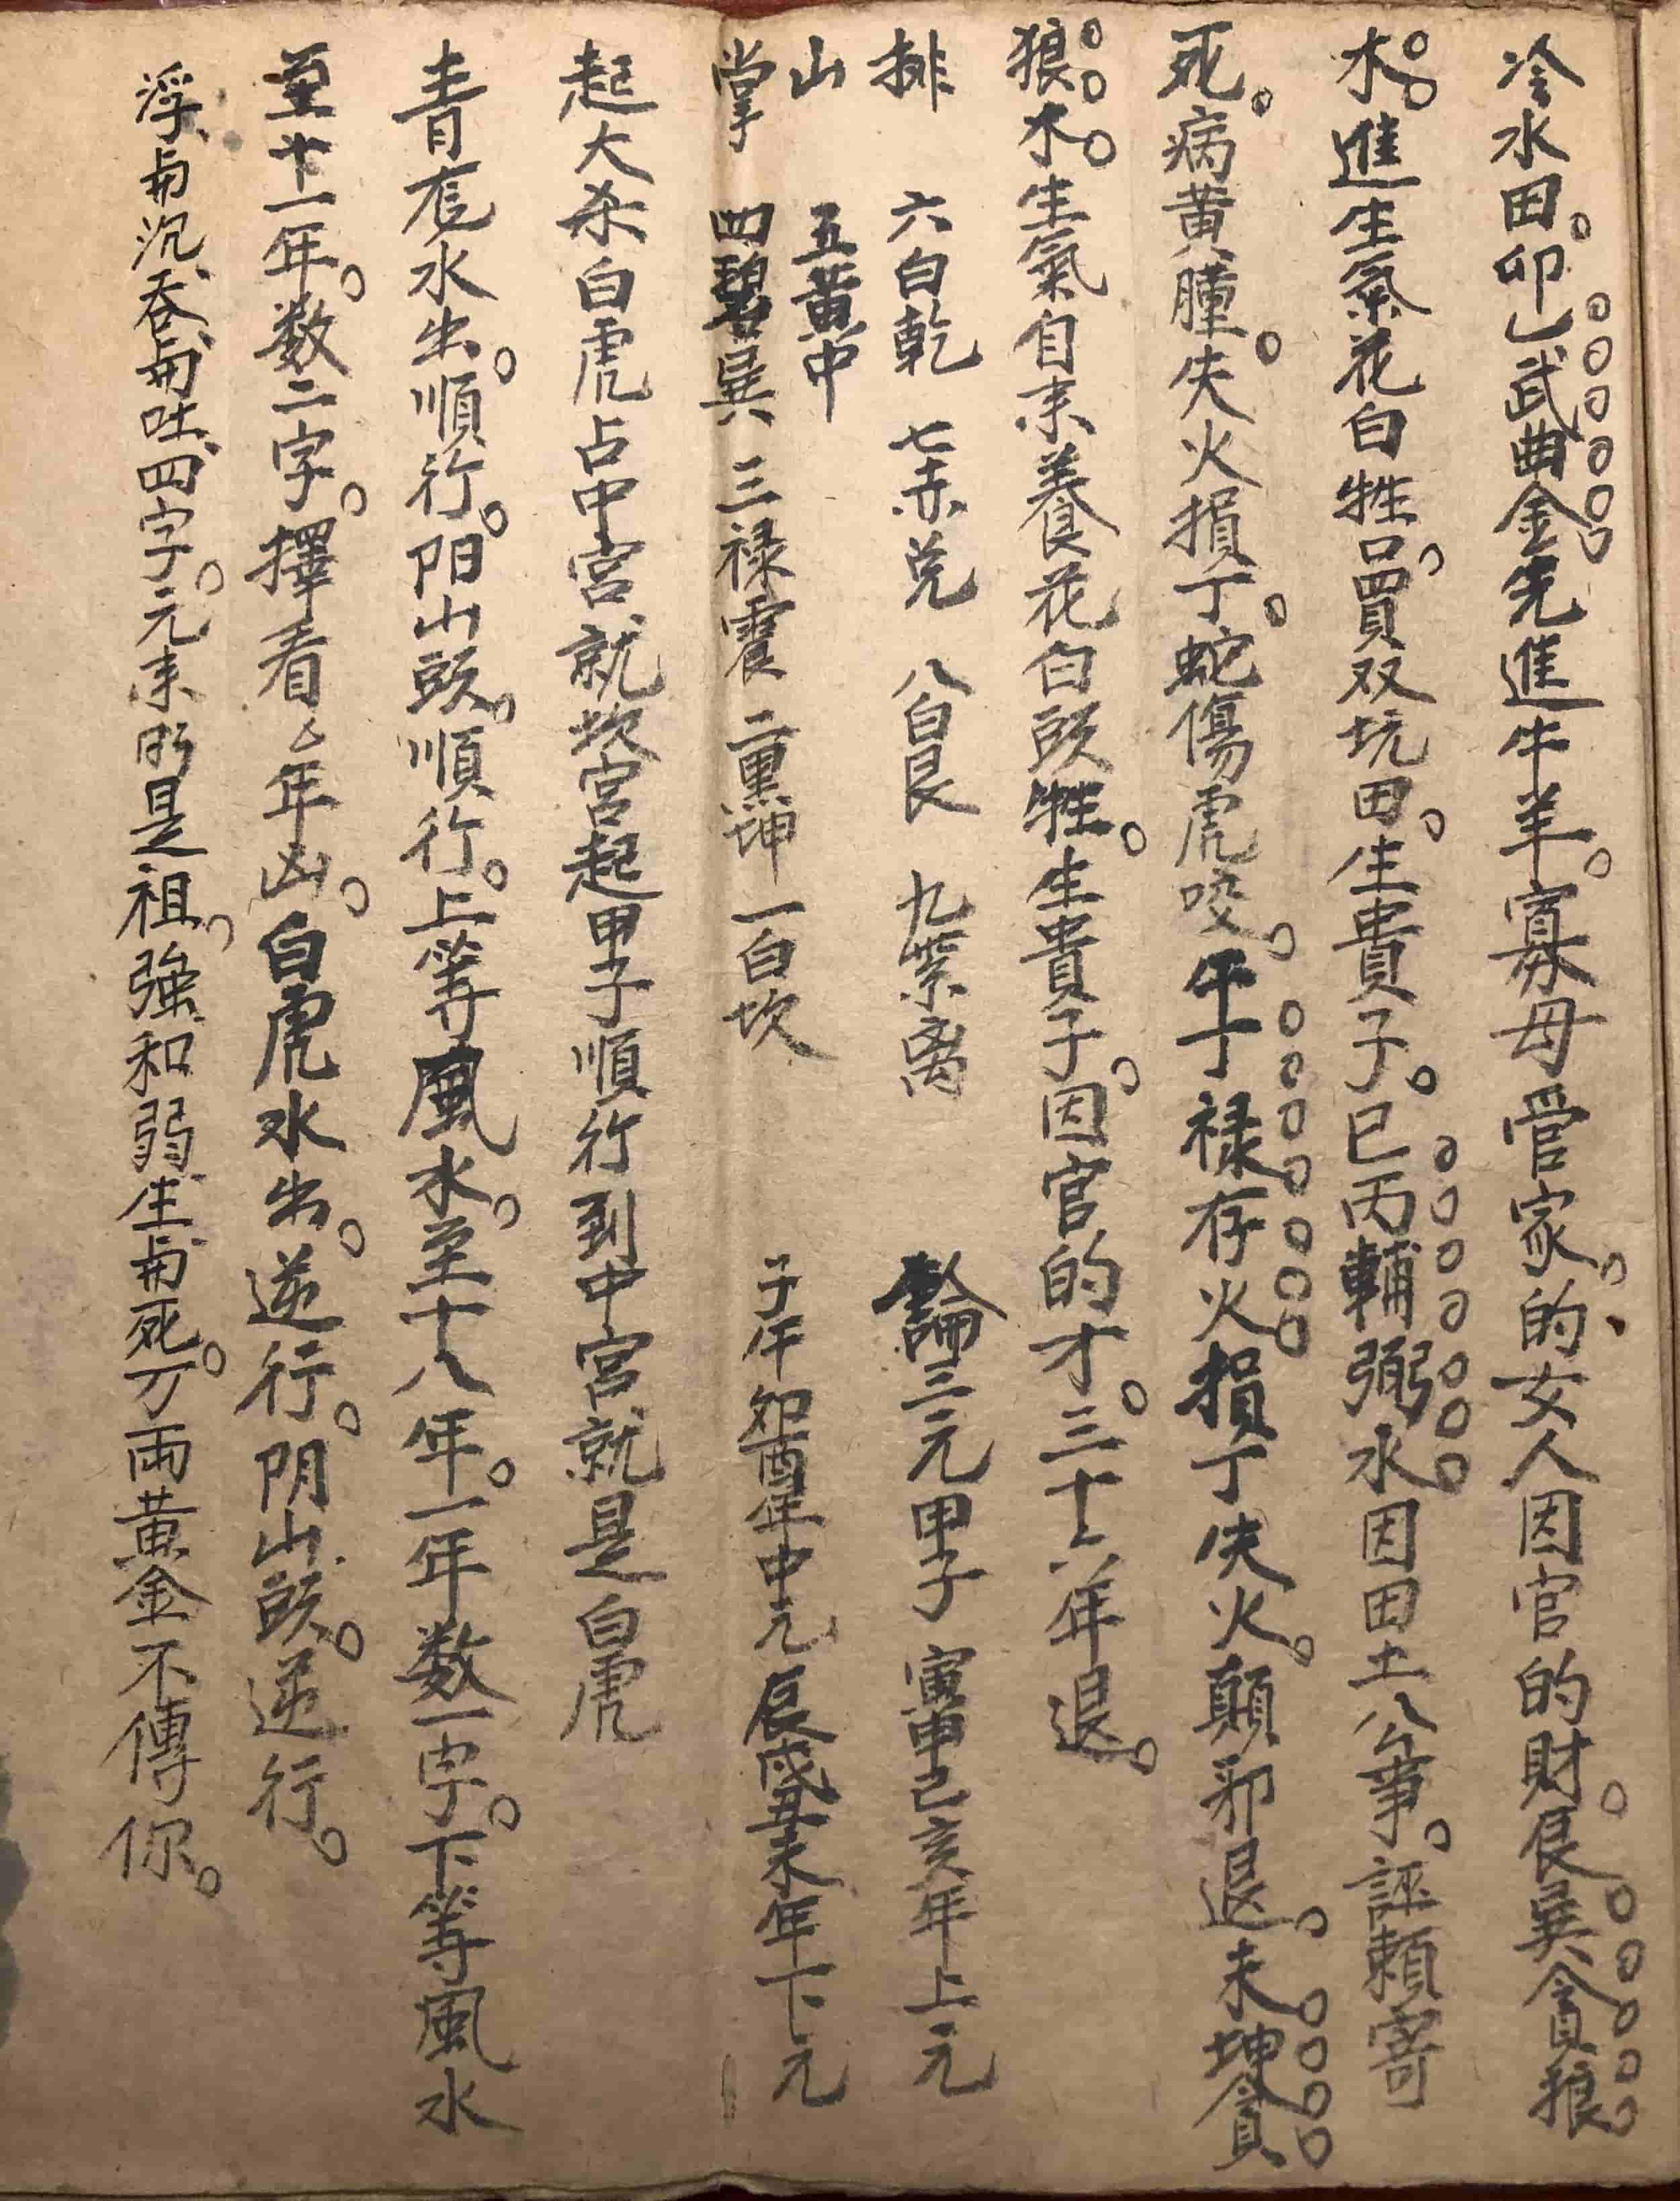 冷水田。卯乚武曲金先進牛羊。寡母管家。的女人因官的財。艮巽貪狼
木。進生氣花白牲口。買双坑田。生貴子。巳丙輔弼水因田土公事。誣賴寄
死。病黄腫。失火損丁。蛇傷虎咬。午丁禄存火損丁失火。顛邪退。未坤貪
狼木。生氣自来養花白頭牲。生貴子。因官的才。三十六年退。
排 六白乾 七赤兑 八白艮 九紫离 論三元甲子 寅申己亥年上元
山 五黄中
掌 四碧巽 三禄震 二黑坤 一白坎 子午卯酉年中元 辰戌丑未年下元
起大杀白虎占中宫就坎宫起甲子順行到中宫就是白虎
青龙水出。順行。阳山頭。順行。上等風水。至十八年。一年数一字。下等風水
至十一年。数二字。擇看乚年凶。白虎水出。逆行。阴山頭。逆行。
浮与沉、吞与吐、四字。元来即是祖。強和弱、生与死。万両黄金不傳你。